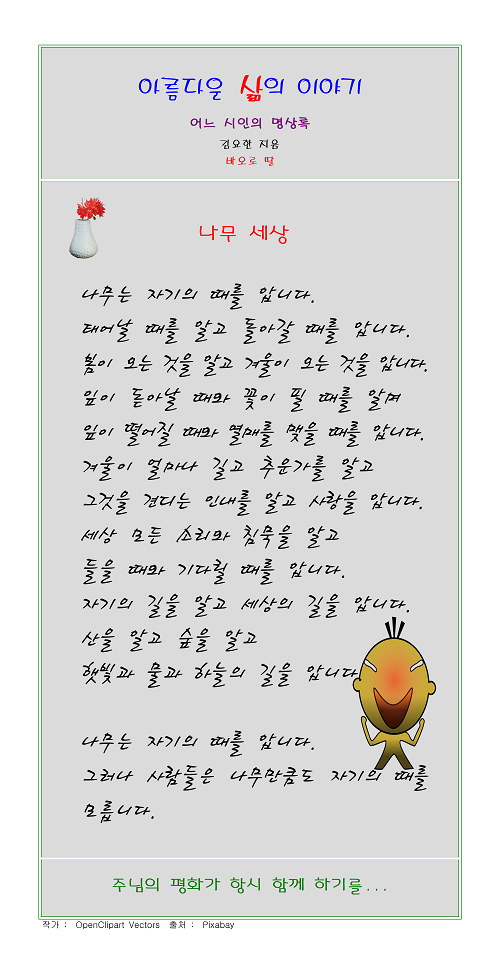 아름다운 삶의 이야기
어느 시인의 명상록
김요한 지음
바오로 딸
나무 세상
나무는 자기의 때를 압니다.
태어날 때를 알고 돌아갈 때를 압니다.
봄이 오는 것을 알고 겨울이 오는 것을 압니다.
잎이 돋아날 때와 꽃이 필 때를 알며
잎이 떨어질 때와 열매를 맺을 때를 압니다.
겨울이 얼마나 길고 추운가를 알고
그것을 견디는 인내를 알고 사랑을 압니다.
세상 모든 소리와 침묵을 알고
들을 때와 기다릴 때를 압니다.
자기의 길을 알고 세상의 길을 압니다.
산을 알고 숲을 알고
햇빛과 물과 하늘의 길을 압니다.
나무는 자기의 때를 압니다.
그러나 사람들은 나무만큼도 자기의 때를
모릅니다.
주님의 평화가 항시 함께 하기를...
작가 : OpenClipart Vectors 출처 : Pixabay